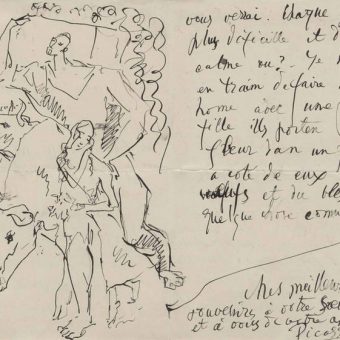 vous verrai. Chaque
plus dificille et
calme ou? Je
en train defaire
home avec une
fille ills porten
fleur dan un
a cote de eux
et du ble
quelque chose comm
Mes meilleu
souvenirs à votre
et à vous de votre a
Picas